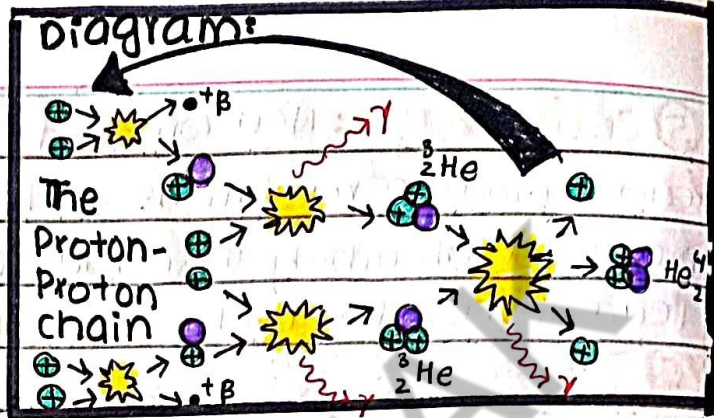 Diagram:
+β
γ
³₂He
The
Proton-
Proton
chain
He⁴₂
³₂He
+β
γ
γ